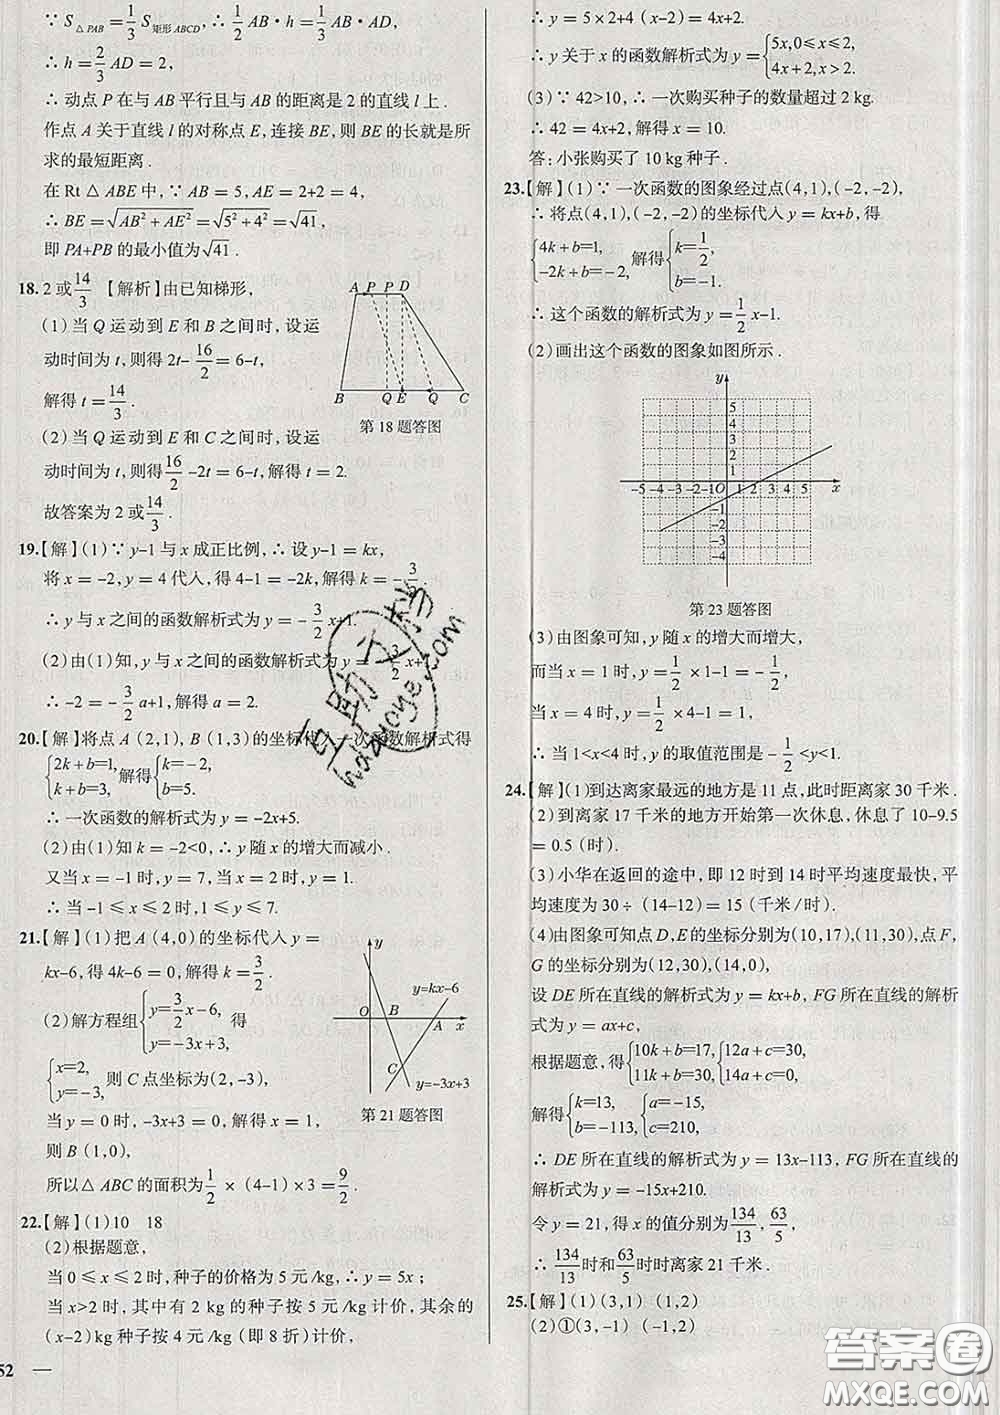 ∵ S△PAB = 1/3 S矩形ABCD, ∴ 1/2 AB·h = 1/3 AB·AD,
∴ h = 2/3 AD = 2,
∴ 动点 P 在与 AB 平行且与 AB 的距离是 2 的直线 l 上.
作点 A 关于直线 l 的对称点 E, 连接 BE, 则 BE 的长就是所
求的最短距离.
在 Rt△ABE 中, ∵ AB = 5, AE = 2+2 = 4,
∴ BE = √(AB²+AE²) = √(5²+4²) = √41,
即 PA+PB 的最小值为√41.
18. 2 或 14/3 【解析】由已知梯形,
(1) 当 Q 运动到 E 和 B 之间时, 设运
动时间为 t, 则得 2t- 16/2 = 6-t,
解得 t = 14/3.
(2) 当 Q 运动到 E 和 C 之间时, 设运
动时间为 t, 则得 16/2 -2t = 6-t, 解得 t = 2.
故答案为 2 或 14/3.
A P P D
B Q E Q C
第 18 题答图
19.【解】(1) ∵ y-1 与 x 成正比例, ∴ 设 y-1 = kx,
将 x = -2, y = 4 代入, 得 4-1 = -2k, 解得 k = - 3/2.
∴ y 与 x 之间的函数解析式为 y = - 3/2 x+1.
(2) 由(1)知, y 与 x 之间的函数解析式为 y = - 3/2 x+1,
∴ -2 = - 3/2 a+1, 解得 a = 2.
20.【解】将点 A (2,1), B (1,3) 的坐标代入一次函数解析式得
{2k+b=1, k+b=3, 解得 {k=-2, b=5.
∴ 一次函数的解析式为 y = -2x+5.
(2) 由(1)知 k = -2<0, ∴ y 随 x 的增大而减小.
又当 x = -1 时, y = 7, 当 x = 2 时, y = 1.
∴ 当 -1 ≤ x ≤ 2 时, 1 ≤ y ≤ 7.
21.【解】(1) 把 A (4,0) 的坐标代入 y =
kx-6, 得 4k-6 = 0, 解得 k = 3/2.
(2) 解方程组 {y=3/2 x-6, y=-3x+3, 得
{x=2, y=-3, 则 C 点坐标为(2,-3),
当 y = 0 时, -3x+3 = 0, 解得 x = 1,
则 B (1,0),
所以△ABC 的面积为 1/2 ×(4-1)×3 = 9/2.
y
y=kx-6
O B A x
C
y=-3x+3
第 21 题答图
22.【解】(1) 10 18
(2) 根据题意,
当 0 ≤ x ≤ 2 时, 种子的价格为 5 元/kg, ∴ y = 5x;
当 x>2 时, 其中有 2 kg 的种子按 5 元/kg 计价, 其余的
(x-2) kg 种子按 4 元/kg (即 8 折) 计价,
52
∴ y = 5×2+4 (x-2) = 4x+2.
∴ y 关于 x 的函数解析式为 y = {5x, 0≤x≤2, 4x+2, x>2.
(3) ∵ 42>10, ∴ 一次购买种子的数量超过 2 kg.
∴ 42 = 4x+2, 解得 x = 10.
答: 小张购买了 10 kg 种子.
23.【解】(1) ∵ 一次函数的图象经过点(4,1), (-2,-2),
∴ 将点(4,1), (-2,-2)的坐标代入 y = kx+b, 得
{4k+b=1, -2k+b=-2, 解得 {k=1/2, b=-1.
∴ 这个函数的解析式为 y = 1/2 x-1.
(2) 画出这个函数的图象如图所示.
y
5
4
3
2
1
-5 -4 -3 -2 -1 O 1 2 3 4 5 x
-1
-2
-3
-4
第 23 题答图
(3) 由图象可知, y 随 x 的增大而增大,
而当 x = 1 时, y = 1/2 ×1-1 = - 1/2,
当 x = 4 时, y = 1/2 ×4-1 = 1.
∴ 当 1<x<4 时, y 的取值范围是 - 1/2 <y<1.
24.【解】(1) 到达离家最远的地方是 11 点, 此时距离家 30 千米.
(2) 到离家 17 千米的地方开始第一次休息, 休息了 10-9.5
= 0.5 (时).
(3) 小华在返回的途中, 即 12 时到 14 时平均速度最快, 平
均速度为 30÷(14-12) = 15 (千米/时).
(4) 由图象可知点 D, E 的坐标分别为(10,17), (11,30), 点 F,
G 的坐标分别为(12,30), (14,0),
设 DE 所在直线的解析式为 y = kx+b, FG 所在直线的解析
式为 y = ax+c,
根据题意, 得 {10k+b=17, 11k+b=30, {12a+c=30, 14a+c=0,
解得 {k=13, b=-113, {a=-15, c=210,
∴ DE 所在直线的解析式为 y = 13x-113, FG 所在直线的
解析式为 y = -15x+210.
令 y = 21, 得 x 的值分别为 134/13, 63/5,
∴ 134/13 时和 63/5 时时离家 21 千米.
25.【解】(1) (3,1) (1,2)
(2) ①(3,-1) (-1,2)
互助文学
huzuoye.com
答案圈
MXQE.COM